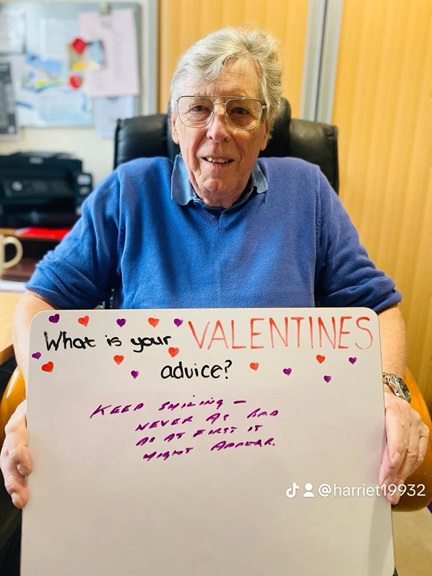 What is your VALENTINES
advice?
KEEP SMILING —
NEVER AS BAD
AS AT FIRST IT
MIGHT APPEAR.
@harriet19932